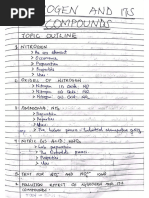 NITROGEN AND ITS
COMPOUNDS
TOPIC OUTLINE
1. NITROGEN
As an element
Occurrence
Preparation
Properties
Uses
2. OXIDES OF NITROGEN
Nitrogen (I) Oxide, N₂O
Nitrogen (II) Oxide, NO
Nitrogen (IV) Oxide, NO₂
3. AMMONIA, NH₃
Preparation
Properties
Uses
The Haber process - Industrial
4. NITRIC (V) ACID, HNO₃
Lab preparation
Properties
Uses
5. TEST FOR
6. POLLUTION EFFECT OF NITROGEN AND ITS
COMPOUNDS